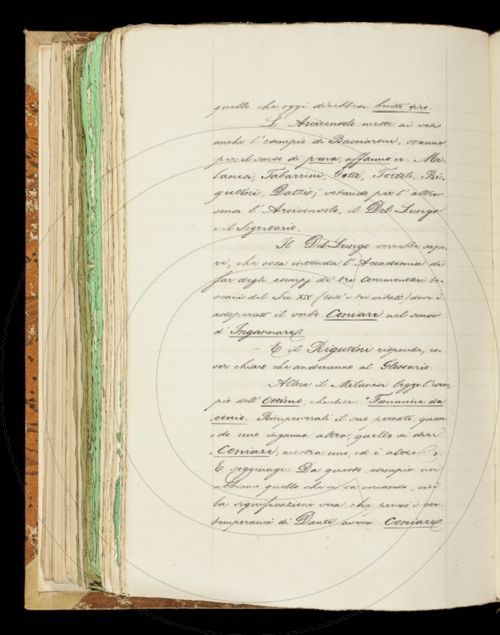 quello che oggi direbbesi
L'Arciconsolo mette ai voti
anche l'esempio di Bacciaroni, e stanno
per il senso di pena, affanno ec. Mi-
lanesi, Tabarrini, Gotti, Tortoli, Ri-
gutini, Dazzi; votando per l'altro
senso l'Arciconsolo, il Del Lungo
e il Segretario.
Il Del Lungo vorrebbe sape-
re, che cosa intenda l'Accademia di
far degli esempj di tre Commentari to-
scani del Sec XIV (tutti e tre citati) dov'è
adoperato il verbo Coniare nel senso
d'Ingannare.
E il Rigutini risponde, es-
ser chiaro che anderanno al Glossario.
Allora il Milanesi legge l'esem-
pio dell'Ottimo, che dice: "Femmine da
conio. Rimproverali il suo peccato; quan-
do uno inganna altro, quello si dice
Coniare, mostra uno, ed è altro."
E soggiunge: Da questo esempio noi
abbiamo quello che si va cercando, cioè
la significazione vera, che presso i con-
temporanei di Dante aveva Coniare